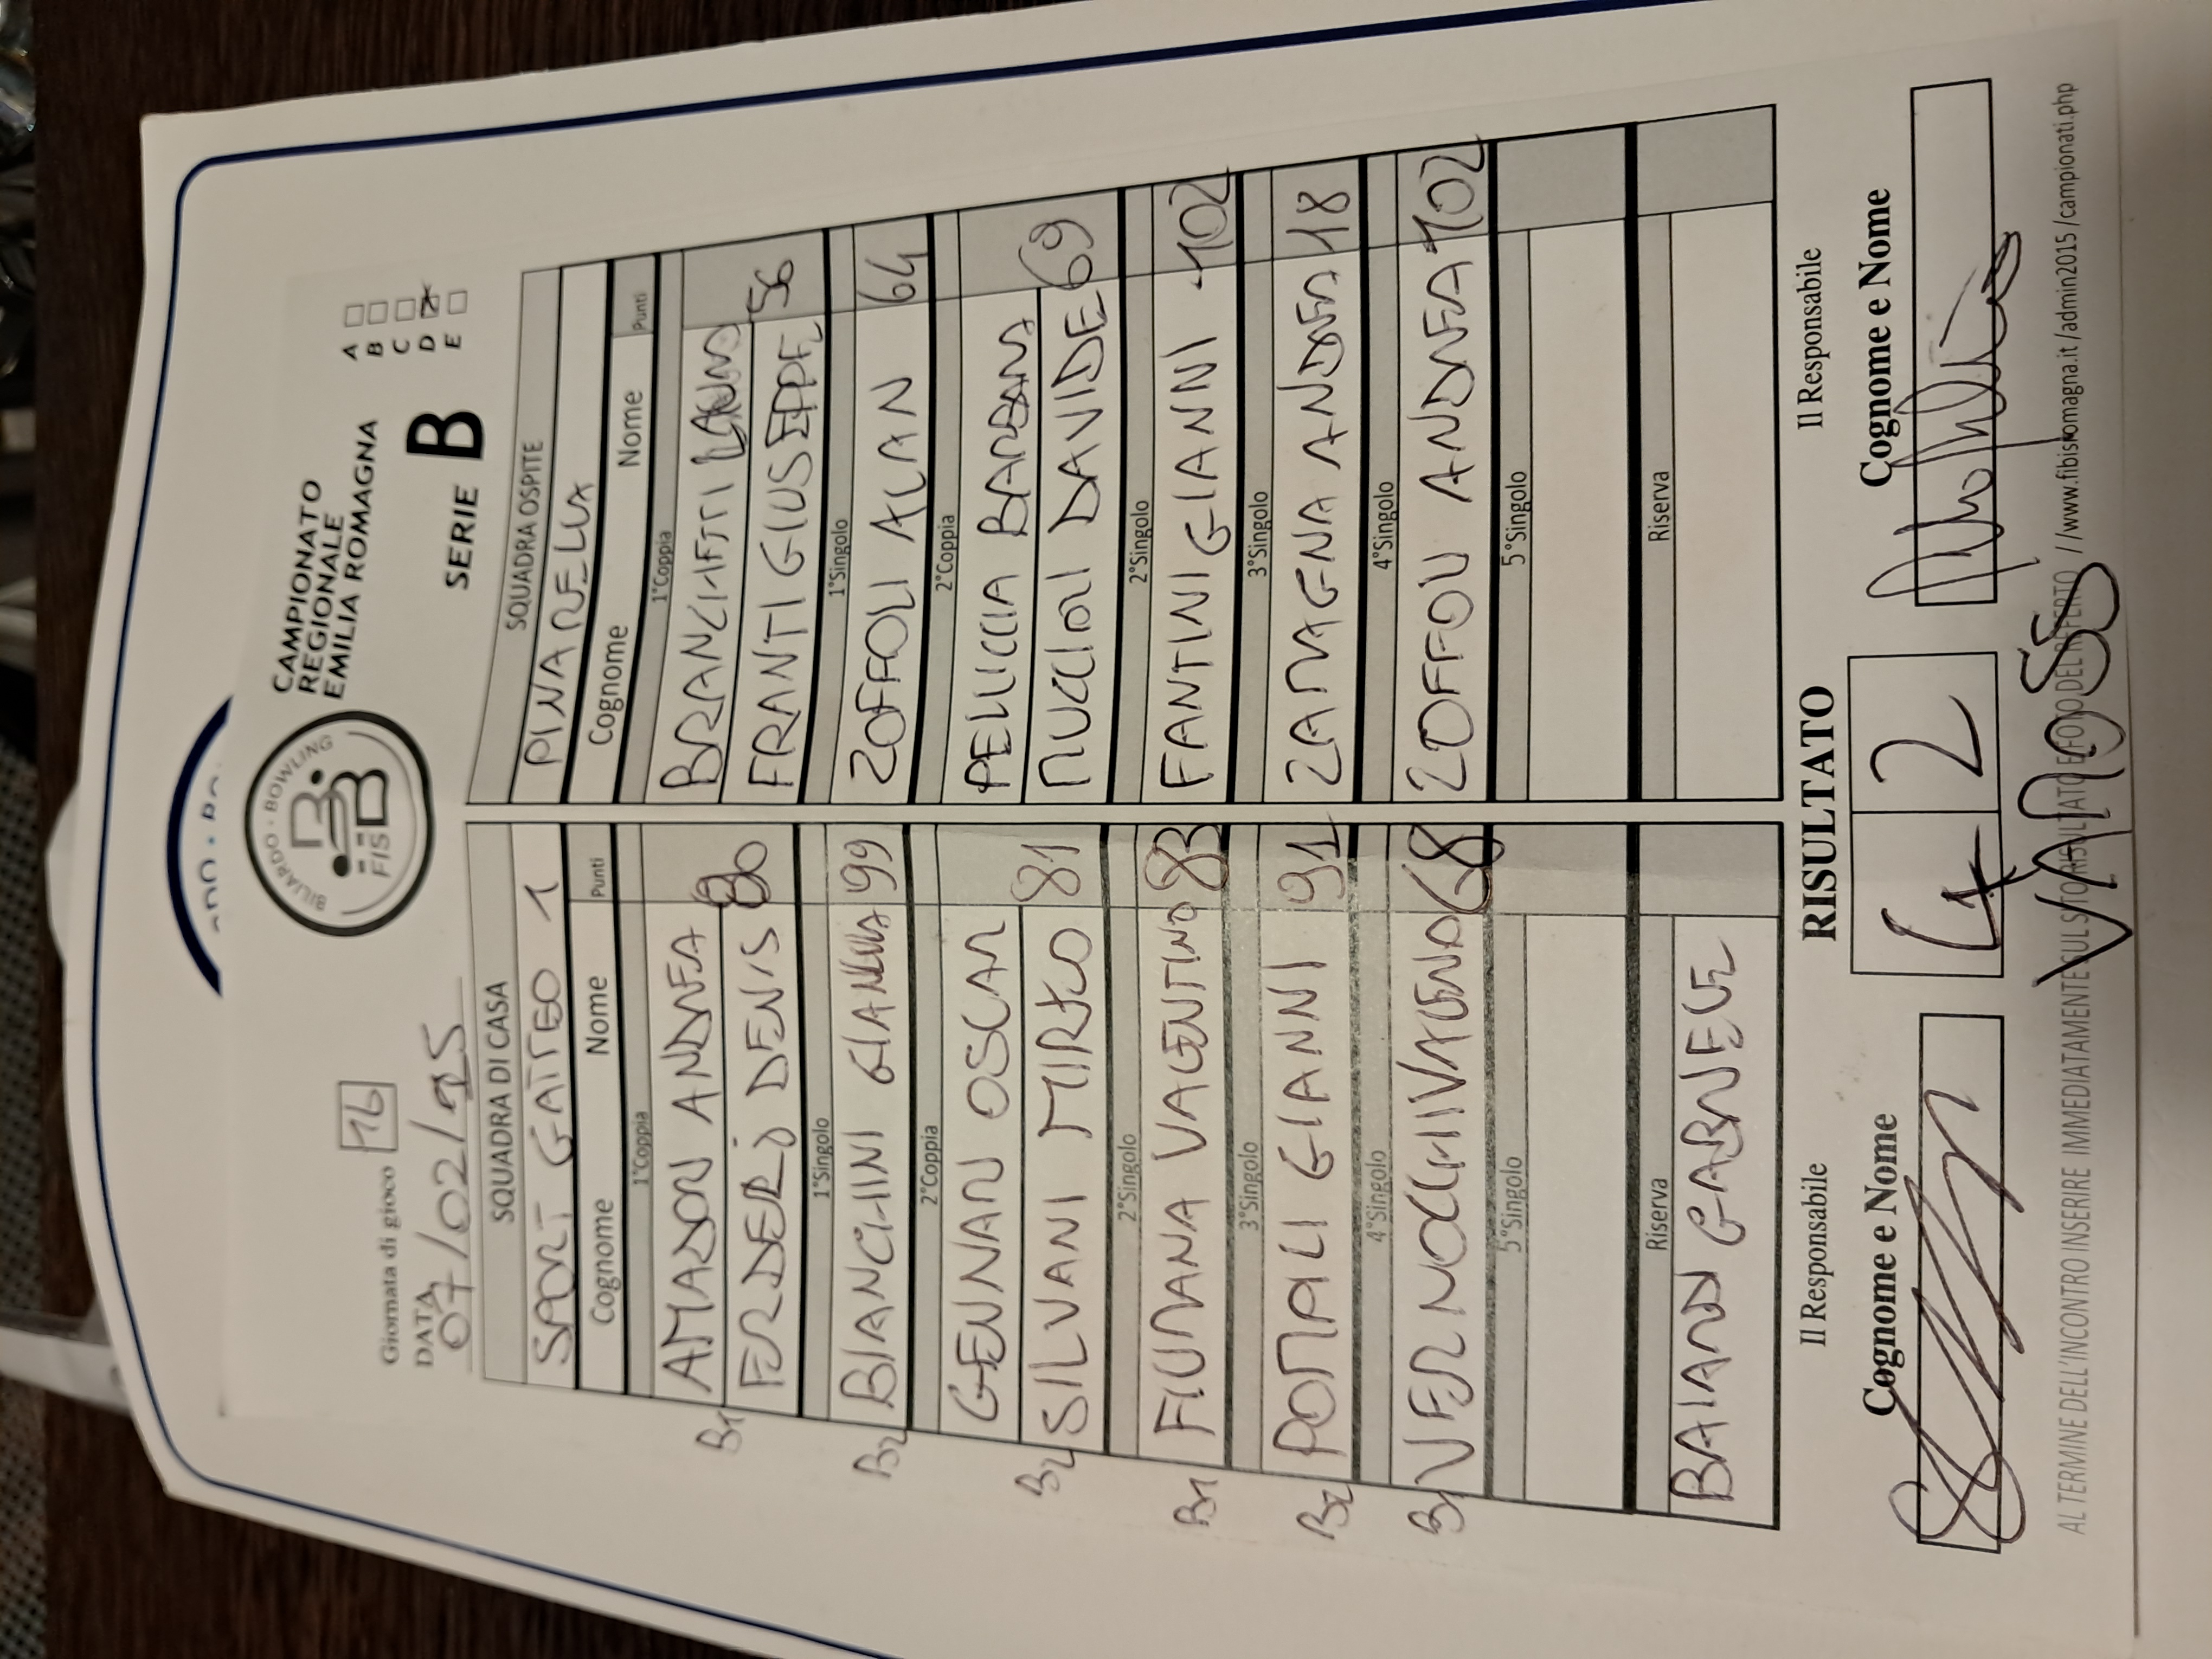 BILIARDO · BOWLING
FISBB
CAMPIONATO
REGIONALE
EMILIA ROMAGNA
A
B
C
D
E
SERIE B
Giornata di gioco 16
DATA
07/02/25
SQUADRA DI CASA
SPORT GATTEO 1
Cognome Nome Punti
1°Coppia
AMADORI ANDREA
FERDERJ DENIS 80
1°Singolo
BIANCHINI GIANLUCA 99
2°Coppia
GENNARI OSCAR
SILVANI MIRKO 81
2°Singolo
FIUMANA VALENTINO 83
3°Singolo
POMPILI GIANNI 91
4°Singolo
VERNOCCHI 68
5°Singolo
Riserva
BAIARDI GABRIELE
B1
B2
B2
B1
B2
B1
SQUADRA OSPITE
PINARELLA
Cognome Nome Punti
1°Coppia
BRANCHETTI
FRANTI GIUSEPPE 56
1°Singolo
ZOFFOLI ALAN 64
2°Coppia
PELLICCIA BARBARA
MUCCIOLI DAVIDE 69
2°Singolo
FANTINI GIANNI 102
3°Singolo
ZAMAGNA ANDREA 18
4°Singolo
ZOFFOLI ANDREA 102
5°Singolo
Riserva
RISULTATO
4 2
Il Responsabile
Cognome e Nome
Il Responsabile
Cognome e Nome
AL TERMINE DELL'INCONTRO INSERIRE IMMEDIATAMENTE SUL SITO RISULTATO E FOTO DEL REFERTO //www.fibisromagna.it/admin2015/campionati.php